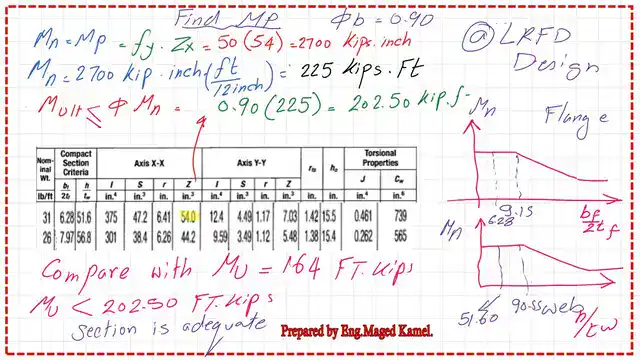 Find MP ϕb = 0.90
Mn = Mp = fy . Zx = 50 (54) = 2700 kips.inch
@ LRFD
Design
Mn = 2700 kip.inch (ft/12inch) = 225 kips.Ft
Mult ≤ ϕ Mn = 0.90 (225) = 202.50 kip.f
Mn
Flange
Nominal Wt. Compact Section Criteria Axis X-X Axis Y-Y rts ho Torsional Properties
bf/2tf h/tw I S r Z I S r Z J Cw
lb/ft in.⁴ in.³ in. in.³ in.⁴ in.³ in. in.³ in. in. in.⁴ in.⁶
31 6.28 51.6 375 47.2 6.41 54.0 12.4 4.49 1.17 7.03 1.42 15.5 0.461 739
26 7.97 56.8 301 38.4 6.26 44.2 9.59 3.49 1.12 5.48 1.38 15.4 0.262 565
6.28 9.15 bf/2tf
Mn
Compare with Mu = 164 FT.kips
Mu < 202.50 FT.kips
section is adequate
51.60 90.55 web h/tw
Prepared by Eng.Maged Kamel.